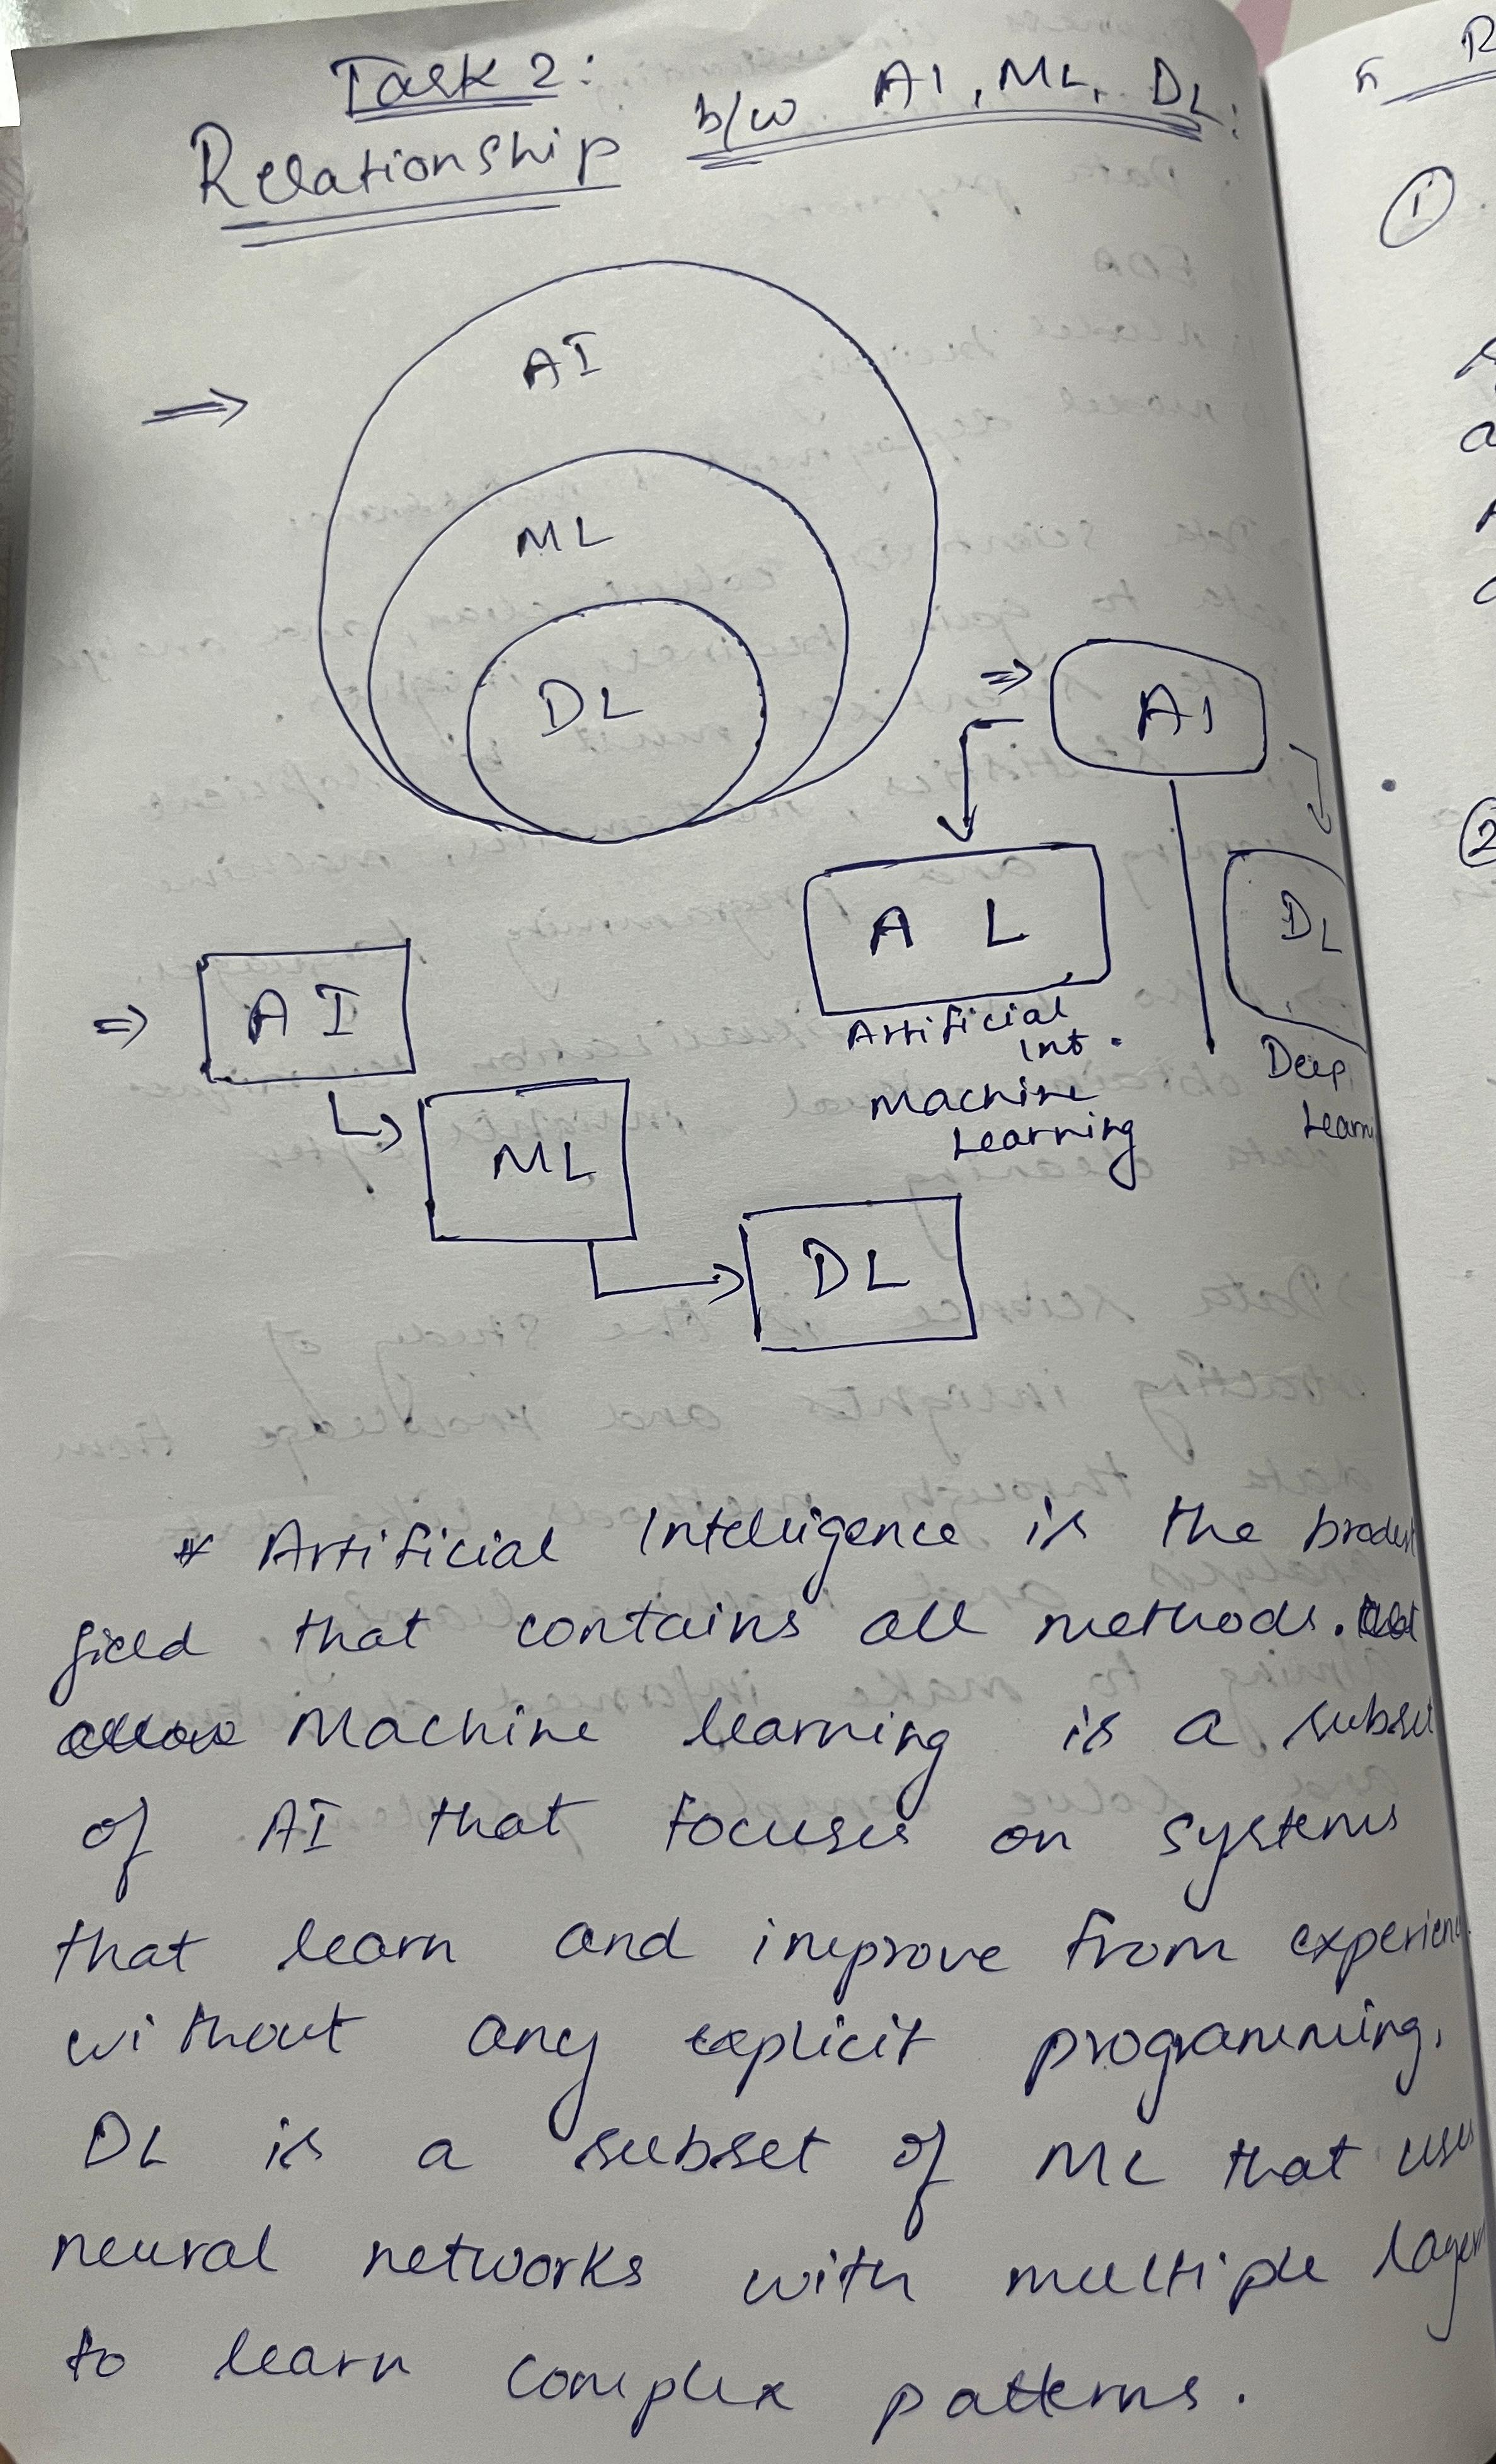 Task 2:
Relationship b/w AI, ML, DL:
AI
ML
DL
⇒ AI
A L
Artificial
Int.
Machine
Learning
DL
Deep
Learn
⇒ AI
ML
DL
* Artificial Intelligence is the
field that contains all methods.
Machine learning is a subset
of AI that focuses on systems
that learn and improve from experienc
without any explicit programming.
DL is a subset of ML that uses
neural networks with multiple layers
to learn complex patterns.
R
1
2